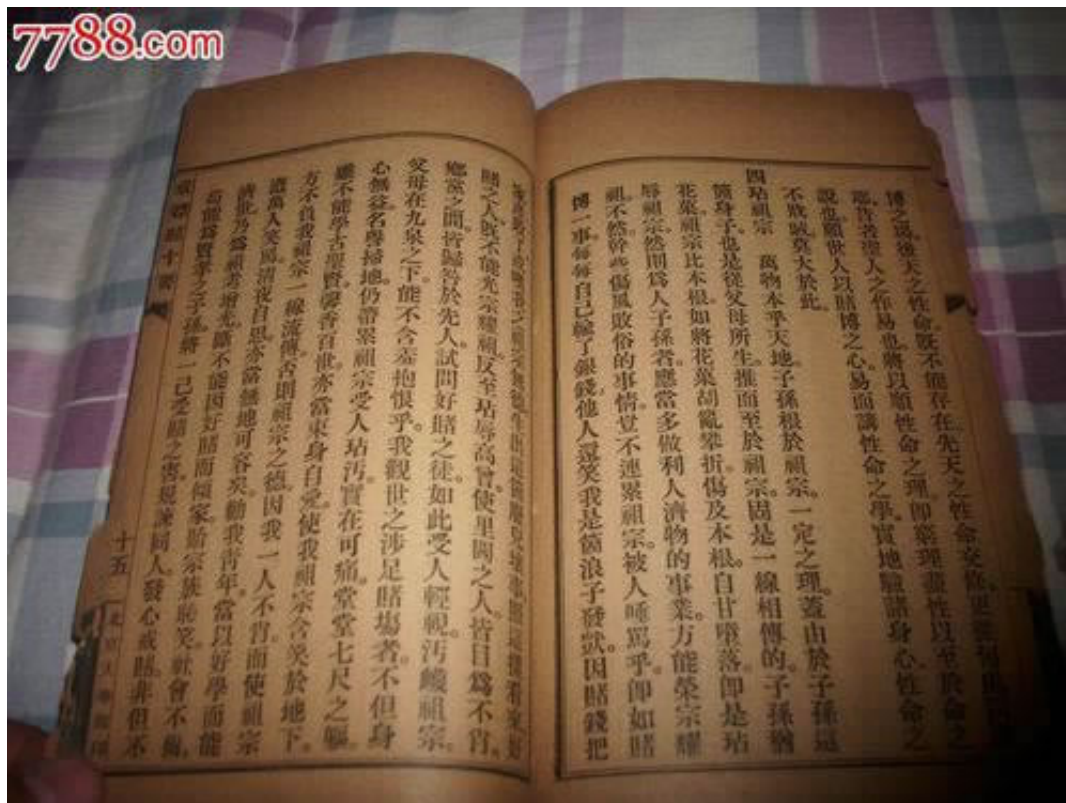 7788.com
博之場後天之性命既不能存在先天之性命
耶昔者聖人之作易也將以順性命之理即窮理盡性以至於命之
說也願世人以賭博之心易而講性命之學實地驗諸身心性命之
不戕賊莫大於此
四玷祖宗 萬物本乎天地子孫根於祖宗一定之理蓋山於子孫這
箇身子也是從父母所生推而至於祖宗固是一線相傳的子孫猶
花葉祖宗比本根如將花葉胡亂攀折傷及本根自甘墮落即是玷
辱祖宗然則爲人子孫者應當多做利人濟物的事業方能榮宗耀
祖不然幹些傷風敗俗的事情豈不連累祖宗被人唾罵乎即如賭
博一事每每自己輸了銀錢他人還笑我是箇浪子發獃因賭錢把
賭之人既不能光宗耀祖反至玷辱高曾使里閭之人皆目爲不肖
鄉黨之間皆歸咎於先人試問好賭之徒如此受人輕視汚衊祖宗
父母在九泉之下能不含羞抱恨乎我觀世之涉足賭場者不但身
心無益名譽掃地仍帶累祖宗受人玷汚實在可痛堂堂七尺之軀
雖不能學古聖賢馨香百世亦當束身自愛使我祖宗含笑於地下
方不負我祖宗一線流傳否則祖宗之德因我一人不肖而使祖宗
遭萬人笑罵清夜自思亦當無地可容矣勸我青年當以好學而能
濟世乃爲祖考增光斷不能因好賭而傾家貽宗族恥笑社會不齒
苟能爲賢孝之子孫將一己受賭之害規諫同人發心戒賭非但不
十五